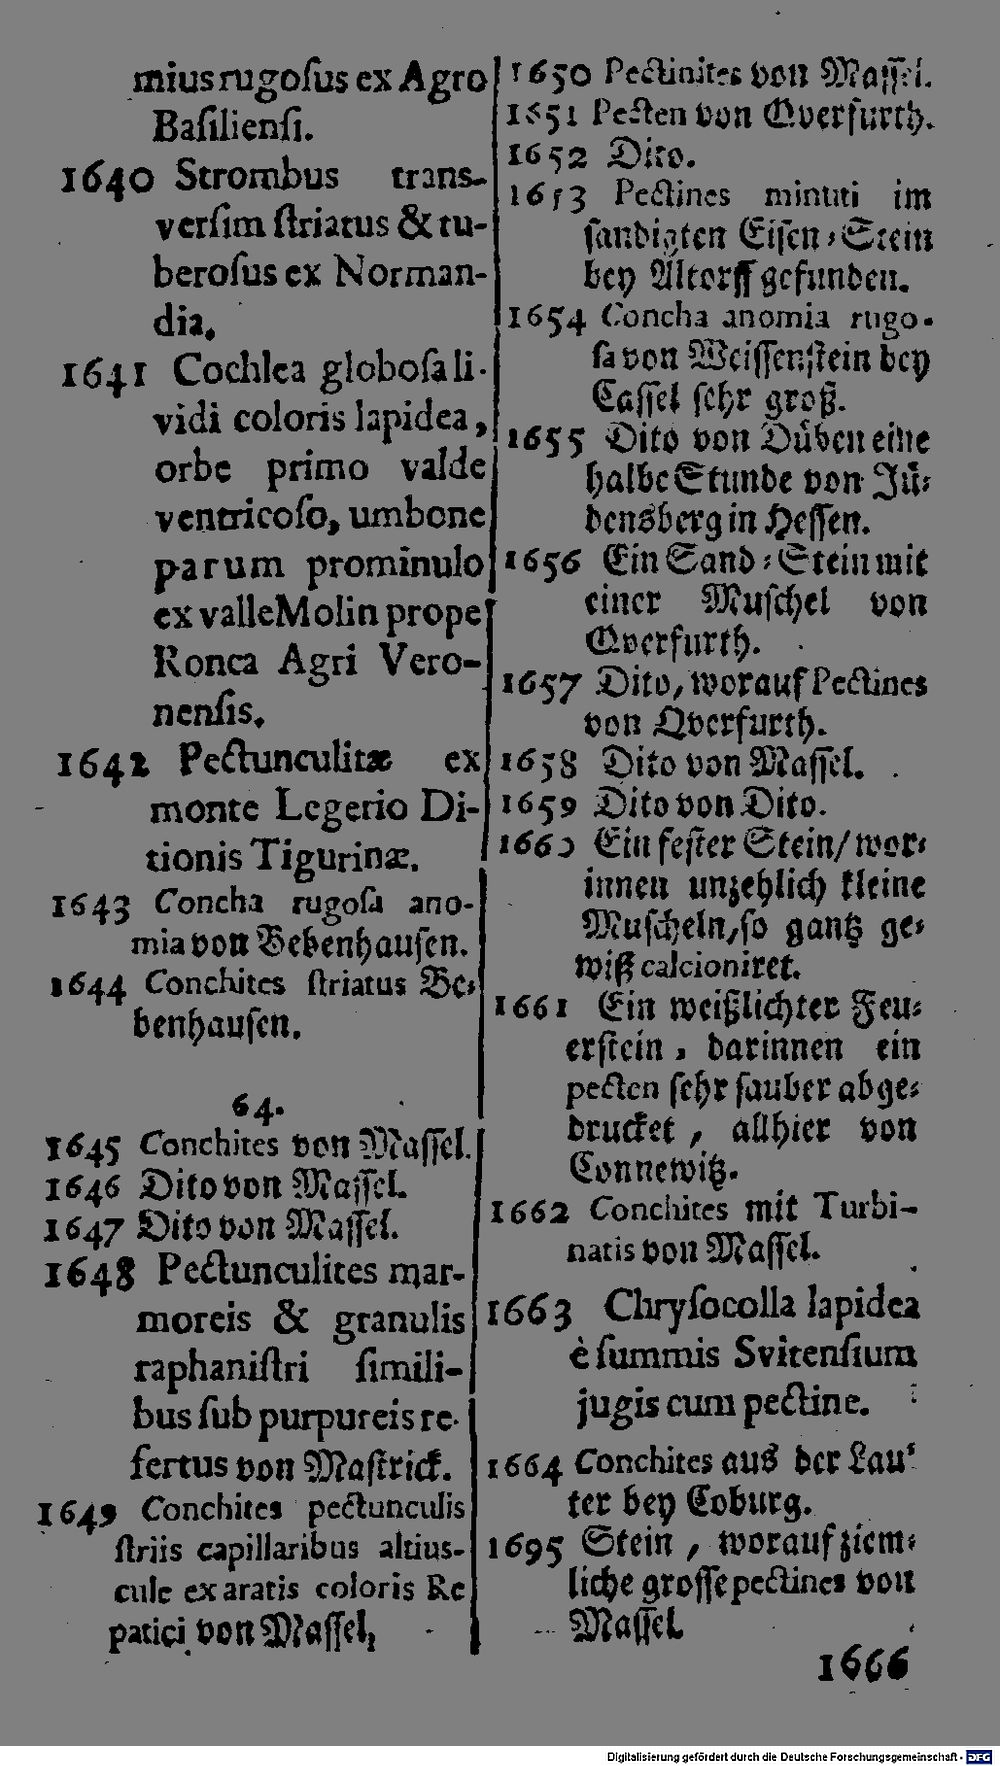 mius rugoſus ex Agro
Baſilienſi.
1640 Strombus trans-
verſim ſtriatus & tu-
beroſus ex Norman-
dia.
1641 Cochlea globoſa li-
vidi coloris lapidea,
orbe primo valde
ventricoſo, umbone
parum prominulo
ex valle Molin prope
Ronca Agri Vero-
nenſis.
1642 Pectunculitæ ex
monte Legerio Di-
tionis Tigurinæ.
1643 Concha rugoſa ano-
mia von Bebenhauſen.
1644 Conchites ſtriatus Be-
benhauſen.
64.
1645 Conchites von Maſſel.
1646 Dito von Maſſel.
1647 Dito von Maſſel.
1648 Pectunculites mar-
moreis & granulis
raphaniſtri ſimili-
bus ſub purpureis re-
fertus von Maſtrick.
1649 Conchites pectunculis
ſtriis capillaribus altius-
cule exaratis coloris Re
patici von Maſſel,
1650 Pectinites von Maſſel.
1651 Pecten von Qverfurth.
1652 Dito.
1653 Pectines minuti im
ſandigten Eiſen-Stein
bey Altorff gefunden.
1654 Concha anomia rugo-
ſa von Weiſſenſtein bey
Caſſel ſehr groß.
1655 Dito von Düben eine
halbe Stunde von Jü-
densberg in Heſſen.
1656 Ein Sand-Stein mit
einer Muſchel von
Qverfurth.
1657 Dito, worauf Pectines
von Qverfurth.
1658 Dito von Maſſel.
1659 Dito von Dito.
1660 Ein feſter Stein/ wor-
innen unzehlich kleine
Muſcheln, ſo gantz ge-
wiß calcioniret.
1661 Ein weißlichter Feu-
erſtein, darinnen ein
pecten ſehr ſauber abge-
drucket, allhier von
Connewitz.
1662 Conchites mit Turbi-
natis von Maſſel.
1663 Chryſocolla lapidea
è ſummis Svitenſium
jugis cum pectine.
1664 Conchites aus der Lau-
ter bey Coburg.
1695 Stein, worauf ziem-
liche groſſe pectines von
Maſſel.
1666
Digitalisierung gefördert durch die Deutsche Forschungsgemeinschaft - DFG